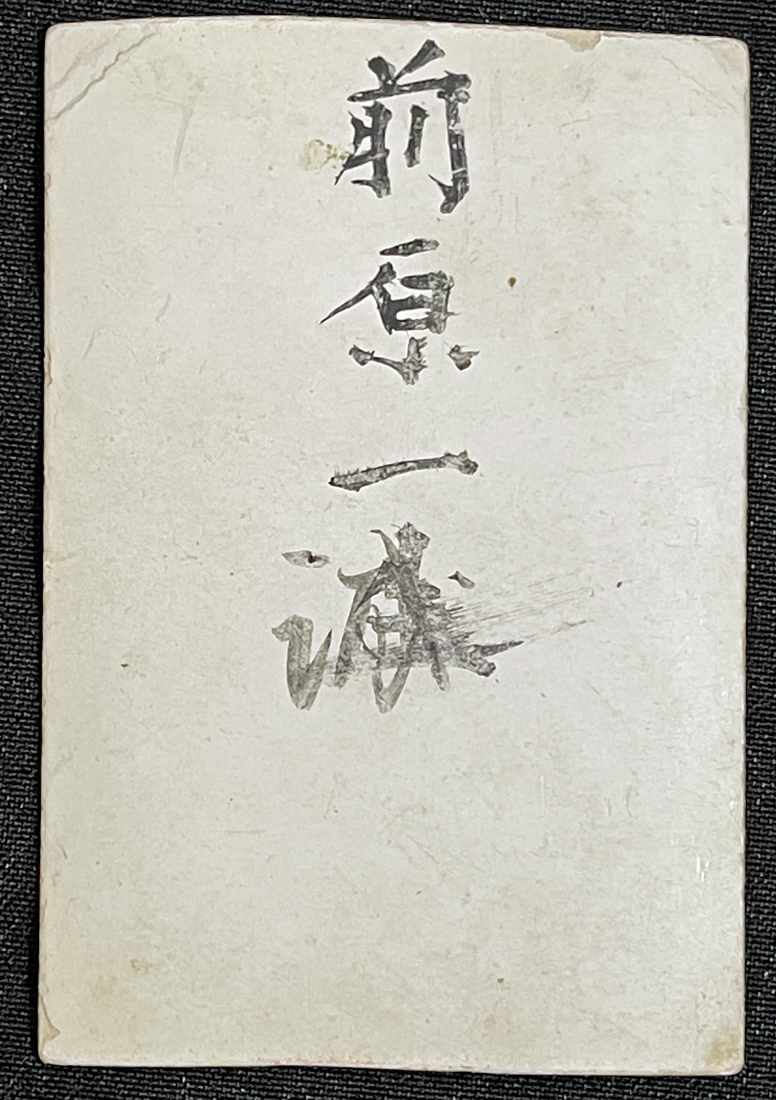 前原一誠